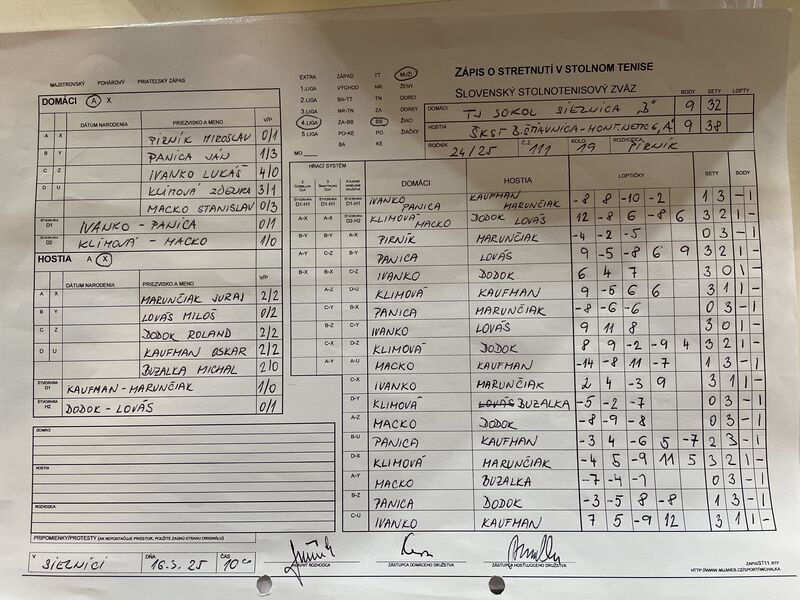 MAJSTROVSKÝ POHÁROVÝ PRIATEĽSKÝ ZÁPAS
DOMÁCI A X
DÁTUM NARODENIA PRIEZVISKO A MENO V/P
A X PIRNÍK MIROSLAV 0/1
B Y PANICA JÁN 1/3
C Z IVANKO LUKÁŠ 4/0
D U KLIMOVÁ ZDENKA 3/1
MACKO STANISLAV 0/3
ŠTVORHRA D1 IVANKO - PANICA 0/1
ŠTVORHRA D2 KLIMOVÁ - MACKO 1/0
HOSTIA A X
DÁTUM NARODENIA PRIEZVISKO A MENO V/P
A X MARUNČIAK JURAJ 2/2
B Y LOVÁS MILOŠ 0/2
C Z DODOK ROLAND 2/2
D U KAUFMAN OSKAR 2/2
BUZALKA MICHAL 2/0
ŠTVORHRA D1 KAUFMAN - MARUNČIAK 1/0
ŠTVORHRA H2 DODOK - LOVÁS 0/1
DOMÁCI
HOSTIA
ROZHODCA
PRIPOMIENKY/PROTESTY (AK NEPOSTAČUJE PRIESTOR, POUŽITE ZADNÚ STRANU ORIGINÁLU)
V SIELNICI DŇA 16.3.25 ČAS 10
HLAVNÝ ROZHODCA ZÁSTUPCA DOMÁCEHO DRUŽSTVA ZÁSTUPCA HOSŤUJÚCEHO DRUŽSTVA
EXTRA ZÁPAD TT MUŽI
1.LIGA VÝCHOD NR ŽENY
2.LIGA BA-TT TN DORCI
3.LIGA NR-TN ZA DORKY
4.LIGA ZA-BB BB ŽIACI
5.LIGA PO-KE PO ŽIAČKY
BA KE
MO
ZÁPIS O STRETNUTÍ V STOLNOM TENISE
SLOVENSKÝ STOLNOTENISOVÝ ZVÄZ BODY SETY LOPTY
DOMÁCI TJ SOKOL SIELNICA "B" 9 32
HOSTIA ŠKST B.ŠTIAVNICA-HONT.NEMCE "A" 9 38
ROČNÍK 24/25 Č.Z. 111 KOLO 19 ROZHODCA PIRNÍK
HRACÍ SYSTÉM DOMÁCI HOSTIA LOPTIČKY SETY BODY
D1-H1 D1-H1 D1-H1 IVANKO PANICA KAUFMAN MARUNČIAK -8 8 -10 -2 1 3 - 1
A-X A-X D2-H2 KLIMOVÁ MACKO DODOK LOVÁS 12 -8 6 -8 6 3 2 1 -
B-Y B-Y A-X PIRNÍK MARUNČIAK -4 -2 -5 0 3 - 1
A-Y C-Z B-Y PANICA LOVÁS 9 -5 -8 6 9 3 2 1 -
B-X B-X C-Z IVANKO DODOK 6 4 7 3 0 1 -
A-Z D-U KLIMOVÁ KAUFMAN 9 -5 6 6 3 1 1 -
C-Y B-X PANICA MARUNČIAK -8 -6 -6 0 3 - 1
B-Z C-Y IVANKO LOVÁS 9 11 8 3 0 1 -
C-X D-Z KLIMOVÁ DODOK 8 9 -2 -9 4 3 2 1 -
A-Y A-U MACKO KAUFMAN -14 -8 11 -7 1 3 - 1
C-X IVANKO MARUNČIAK 2 4 -3 9 3 1 1 -
D-Y KLIMOVÁ LOVÁS BUZALKA -5 -2 -7 0 3 - 1
A-Z MACKO DODOK -8 -9 -8 0 3 - 1
B-U PANICA KAUFMAN -3 4 -6 5 -7 2 3 - 1
D-X KLIMOVÁ MARUNČIAK -4 5 -9 11 5 3 2 1 -
A-Y MACKO BUZALKA -7 -4 -1 0 3 - 1
B-Z PANICA DODOK -3 -5 8 -8 1 3 - 1
C-U IVANKO KAUFMAN 7 5 -9 12 3 1 1 -
ZAPISST11.RTF
HTTP://WWW.MUJWEB.CZ/SPORT/MICHALKA